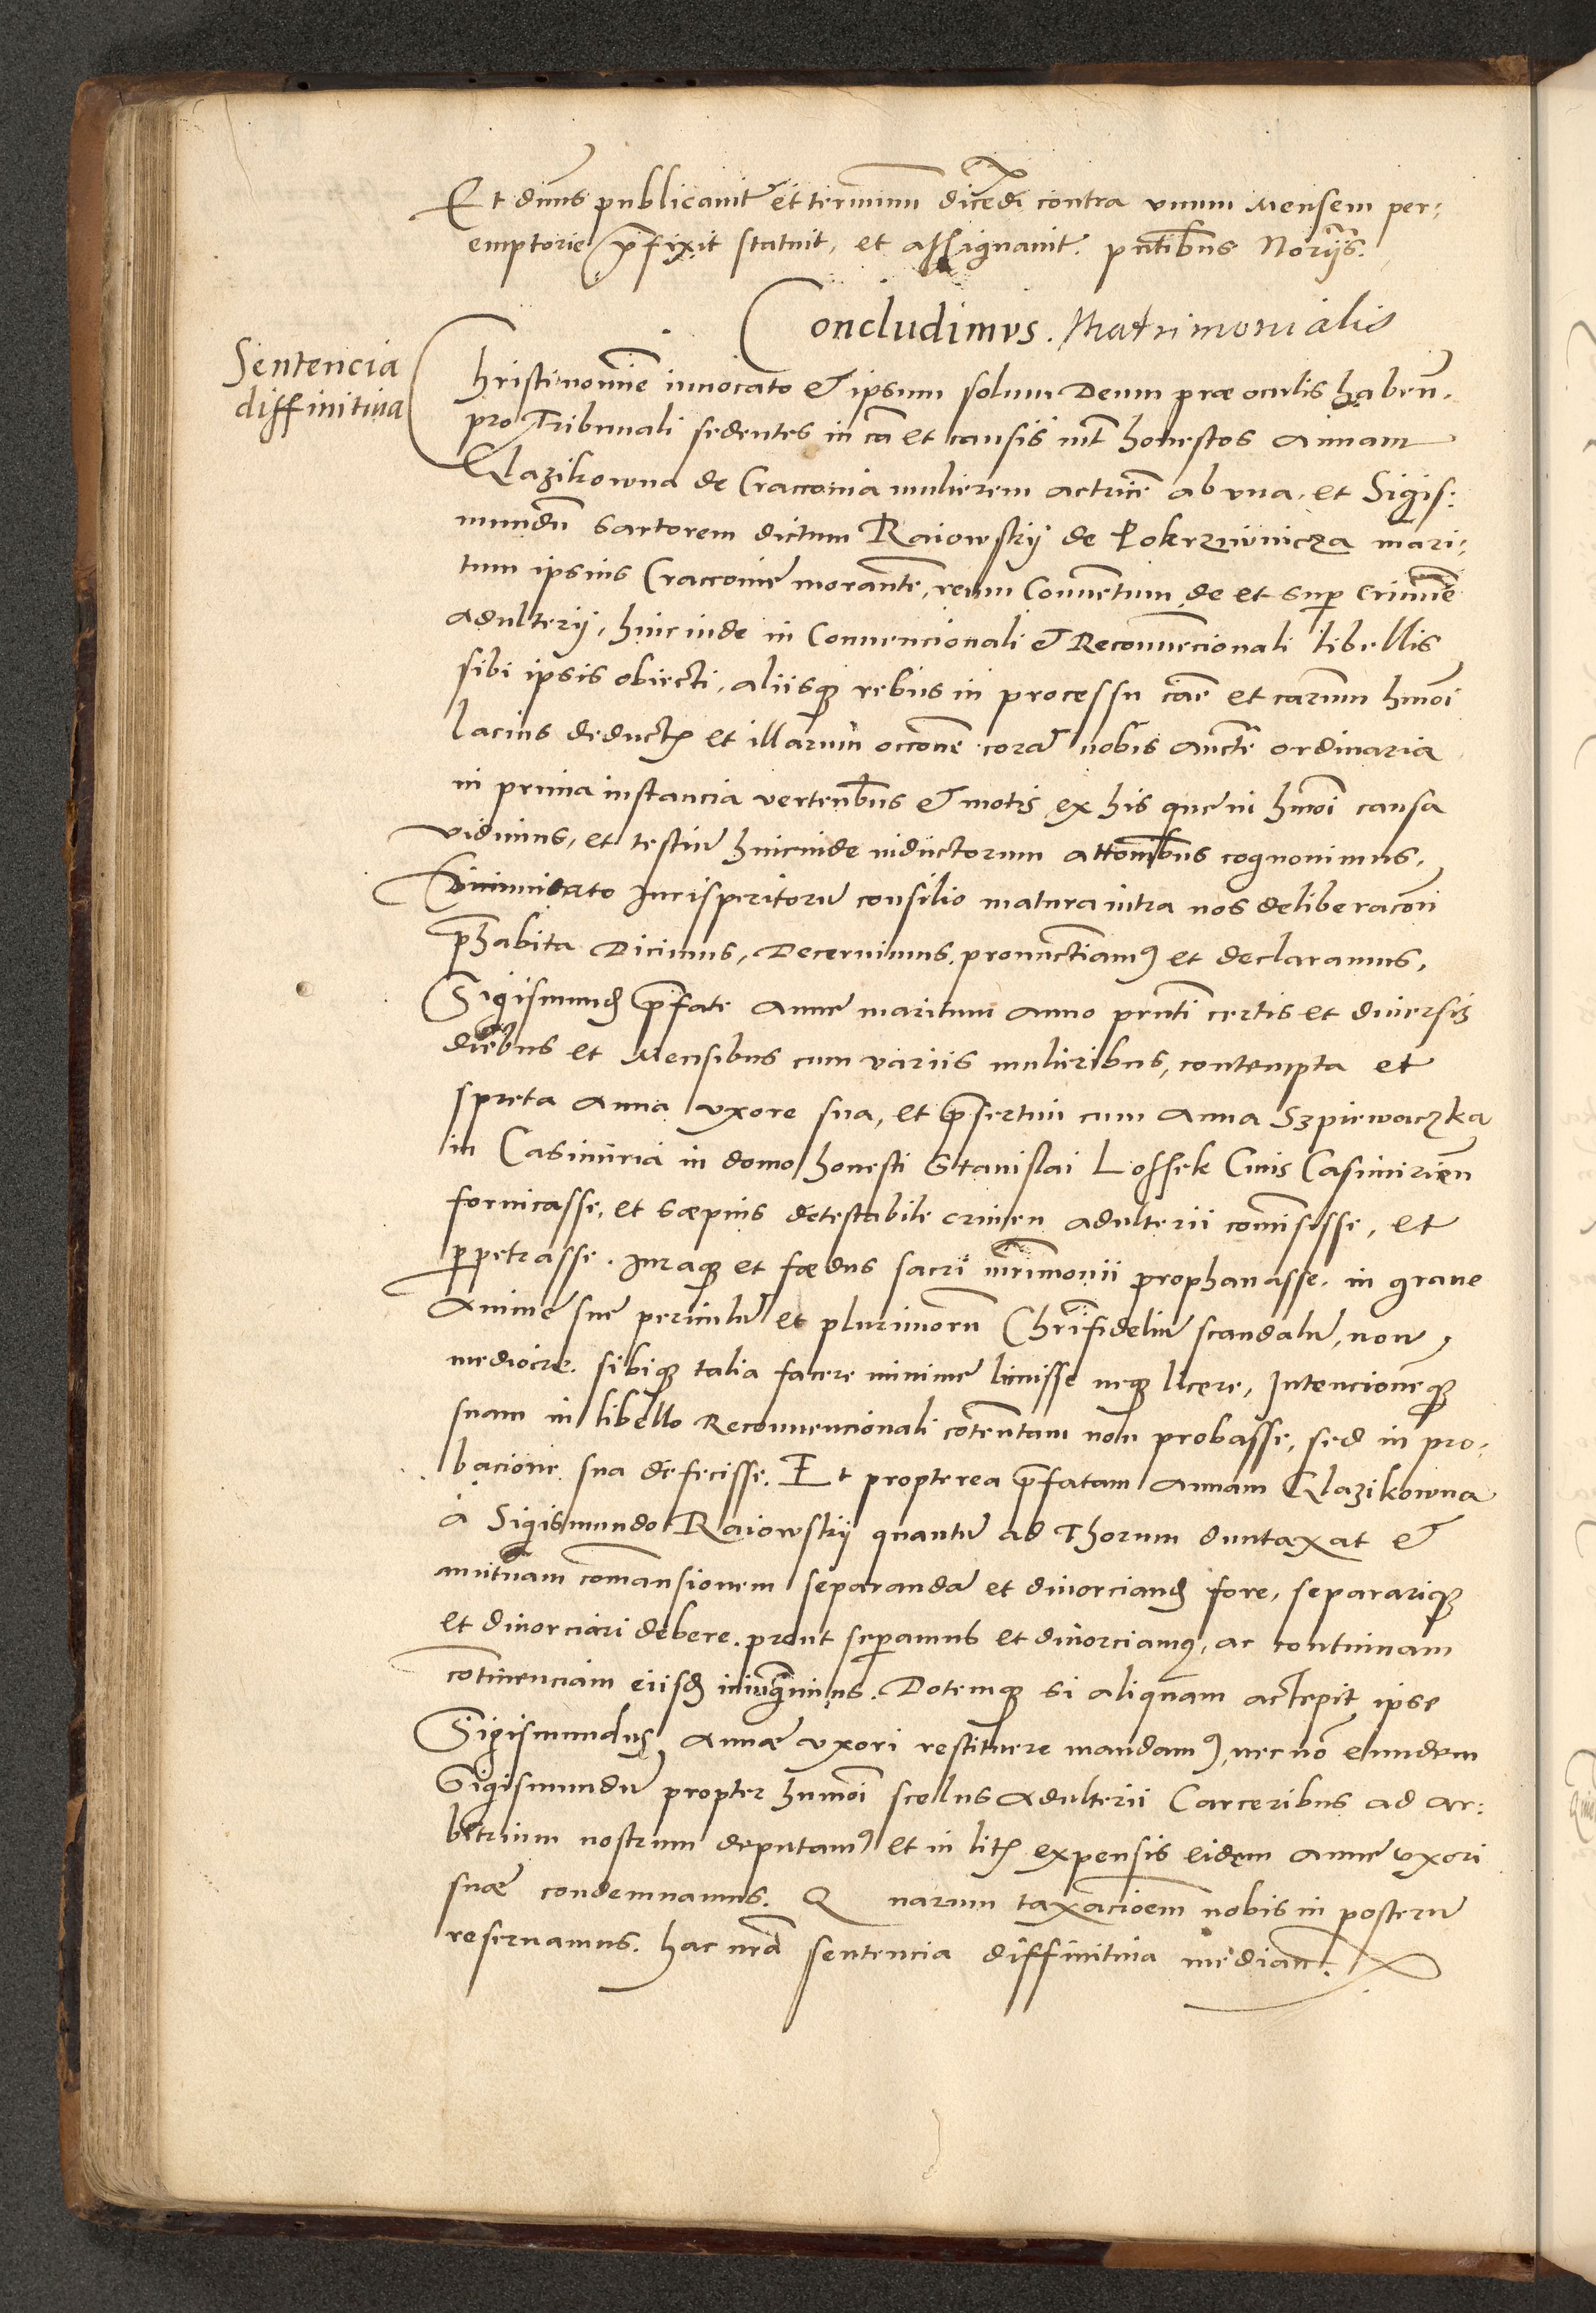 Et dnus publicavit et terminum dicedi contra unum Mensem per:
emptorie prefixit statuit, et assignavit. pntibus Norijs.
Concludimus. Matrimonialis
Sentencia
diffinitiva
Christi nomine invocato et ipsum solum Deum præ oculis haben.
pro Tribunali sedentes in ca et causis int honestos Annam
Glazikowna de Cracovia mulierem actrice ab una, et Sigis:
mundu Sartorem dictum Raiowskij de Pokrziwnicza mari:
tum ipsius Cracovie morante, reum Conventum de et super crimine
adulterij, hinc inde in Convencionali et Reconvencionali libellis
sibi ipsis obiecti, aliisque rebus in processu cae et carum hmoi
lacius deductis et illarum occone cora nobis aucte ordinaria
in prima instancia vertenbus et motis ex his que in hmoi causa
vidimus, et testiu hincinde inductorum attonibus cognovimus,
Iurisperitoru consilio matura intra nos deliberaconi
prehabita Dicimus, Decernimus, pronunctiamus et declaramus,
Sigismund prefate Anne maritum anno pnti certis et diversis
diebus et Mensibus cum variis mulieribus, contempta et
spreta Anna uxore sua, et presertim cum Anna Szpiewaczka
in Casimiria in domo honesti Stanislai Lossek Civis Casimirien
fornicasse, et sæpius detestabile crimen adulterii comisisse, et
perpetrasse. Iuraque et fœdus sacri mrimonii prophanasse. in grave
Anime sue periculu et plurimoru Chrifideliu scandalu, non
mediocre. sibique talia facere minime licuisse neque licere, Intencioneque
suam in libello Reconvencionali cotentam non probasse, sed in pro:
bacione sua defecisse. Et propterea prefatam Annam Glazikowna
à Sigismundo Raiowskij quantu ad Thorum duntaxat et
mutuam comansionem separanda et divorciand fore, separarique
et divorciari debere. prout seperamus et divorciamus, ac continuam
continenciam eiisd iniungimus. Dotemque si aliquam accepit ipse
Sigismundus Annæ uxori restituere mandamus, nec no eundem
Sigismundu propter humoi scelus Adulterii Carceribus ad ar:
bitrium nostrum deputamus et in litis expensis eidem Anne uxori
suæ condemnamus. Quarum taxacioem nobis in posteru
reservamus. hac nra sentencia diffinitiva median.